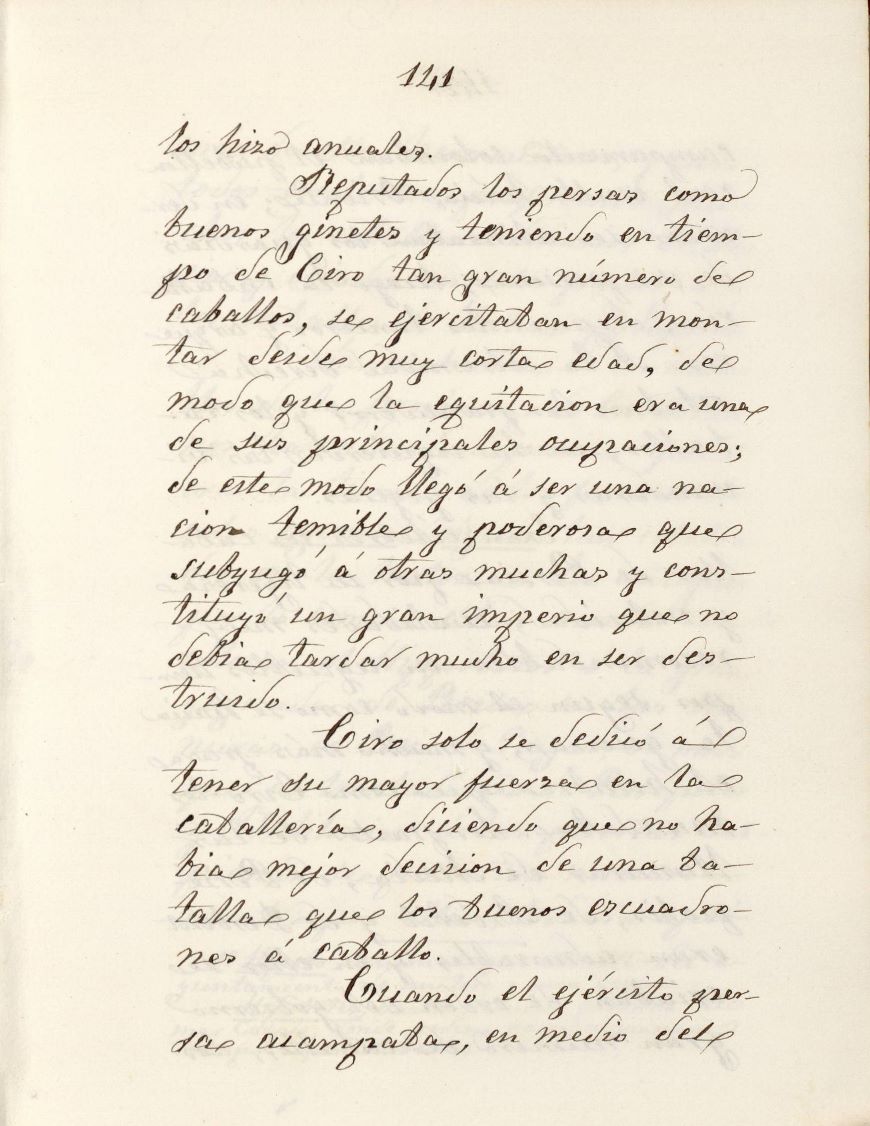 141
los hizo anuales.
Reputados los persas como
buenos ginetes y teniendo en tiem-
po de Ciro tan gran número de
caballos, se ejercitaban en mon-
tar desde muy corta edad, de
modo que la equitacion era una
de sus principales ocupaciones;
de este modo llegó á ser una na-
cion temible y poderosa que
subyugó á otras muchas y cons-
tituyó un gran imperio que no
debia tardar mucho en ser des-
truido.
Ciro solo se dedicó á
tener su mayor fuerza en la
caballería, diciendo que no ha-
bia mejor decision de una ba-
talla que los buenos escuadro-
nes á caballo.
Cuando el ejército per-
sa acampaba, en medio del